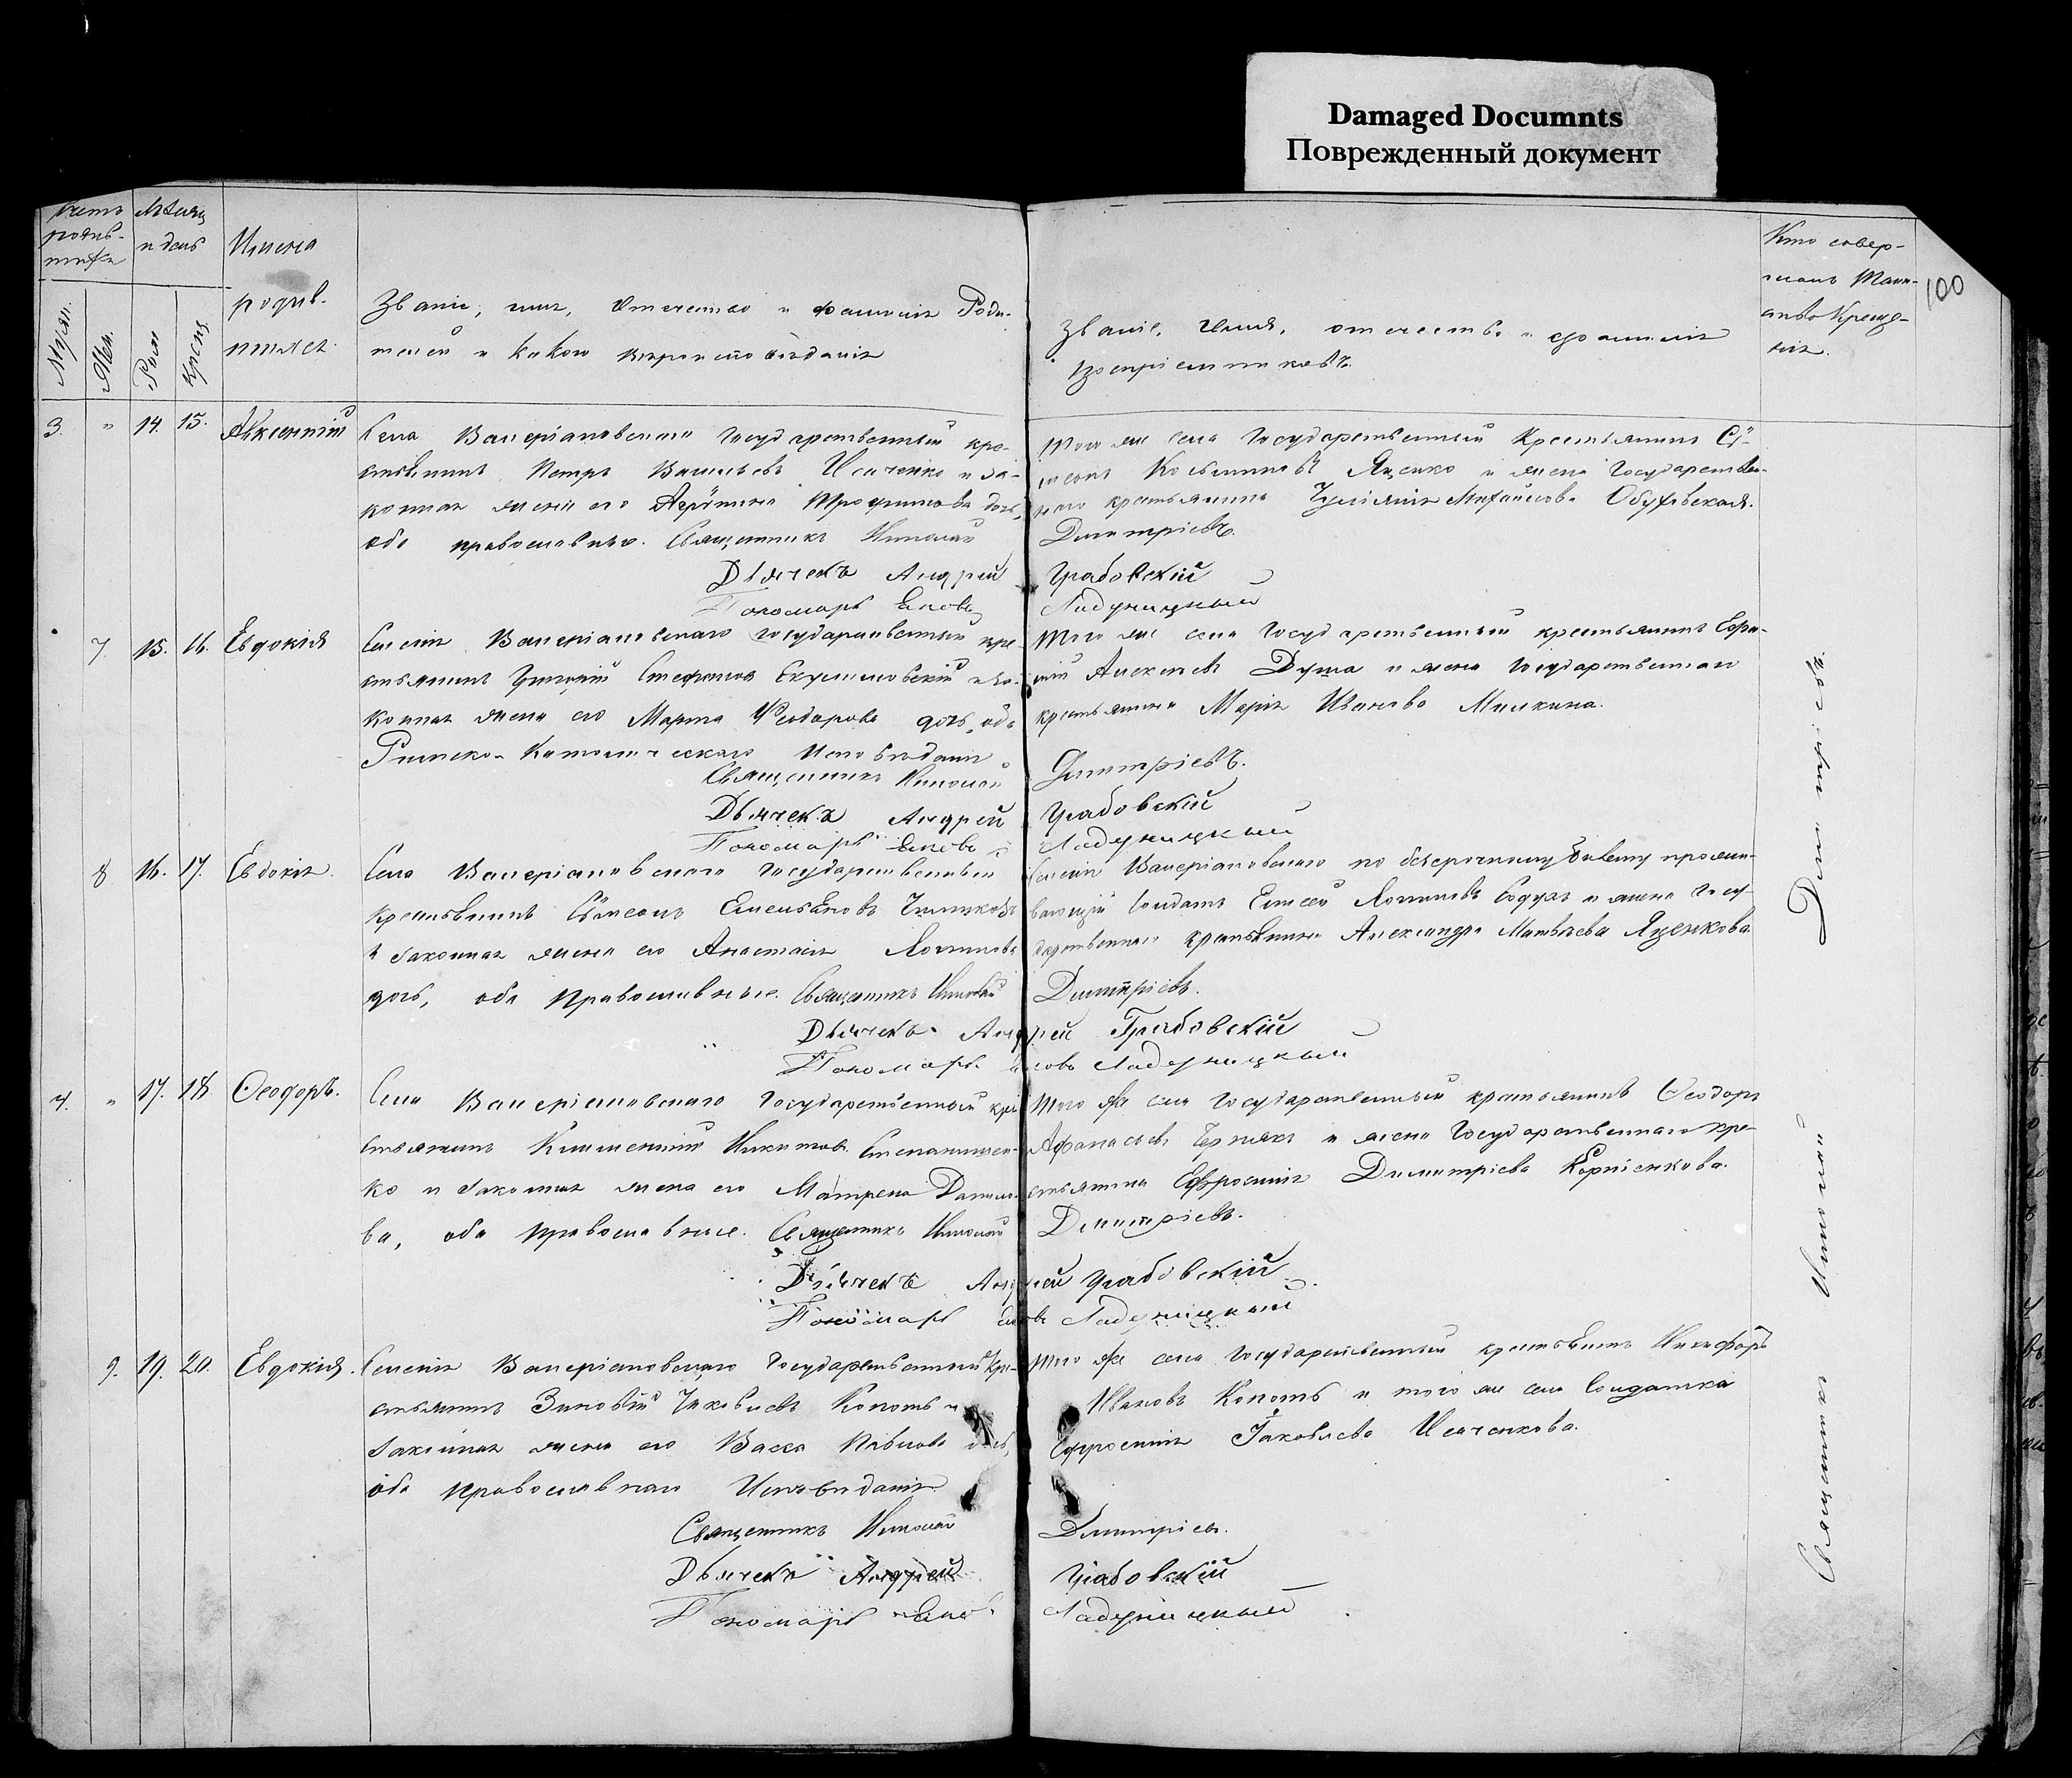 Damaged Documnts
Поврежденный документ
100
Счетъ родив-
Мѣсяц и день
Имена
родив-
шихся
Муж.
Жен.
Кто совер-
шалъ Таин-
ство Креще-
нія.
Званіе, имя, Отчество и фамилія Роди-
телей и какого вѣроисповѣданія
Званіе, Имя, отчество и фамилія
Воспріемниковъ.
3. " 14. 15. Авксентій
Села Валеріановскаго Государственный кре-
стьянинъ Петръ Васильевъ Исаченко и за-
конная жена его Агрипина Трофимова дочь,
оба православные. Священникъ Николай
Дьячекъ Андрей
Пономарь Яковъ
Того же села Государственный Крестьянинъ Сѵ-
меонъ Яценко и жена Государствен-
наго крестьянина Іуліанія Михайлова Обуховская.
Димитріевъ.
Грабовскій
Ладуницкый
7. 15. 16. Евдокія
Селенія Валеріановскаго государственный кре-
стьянинъ Григорій Стефановъ и за-
конная жена его Марта Феодорова дочь, оба
Римско-Католическаго Исповѣданія
Священникъ Николай
Дьячекъ Андрей
Пономарь Яковъ
Того же села Государственный крестьянинъ Ефи-
мій Алексѣевъ Дума и жена Государственнаго
крестьянина Марія Иванова Малкина.
Димитріевъ.
Грабовскій
Ладуницкый
8 16. 17. Евдокія.
Села Валеріановскаго Государственный
крестьянинъ Сѵмеонъ Емельяновъ
и законная жена его Анастасія Логинова
дочь, оба Православные. Священникъ Николай
Дьячекъ Андрей
Пономарь
Селенія Валеріановскаго по безсрочному билету прожи-
вающій Солдатъ Елисей Логиновъ и жена Госу-
дарственнаго крестьянина Александра Матвѣева Яценкова
Димитріевъ.
Грабовскій
Ладуницкый
4. " 17. 18. Ѳеодоръ.
Села Валеріановскаго Государственный кре-
стьянинъ Климентій Никитовъ Степаненко-
ко и законная жена его Матрена Данило-
ва, оба православные. Священникъ Николай
Дьячекъ Андрей
Пономарь
Того же села Государственный крестьянинъ Ѳеодоръ
Афанасьевъ Чернякъ и жена Государственнаго кре-
стьянина Евфросинія Димитріева Корніенкова.
Димитріевъ.
Грабовскій
Ладуницкый
9. 19. 20. Евдокія.
Селенія Валеріановскаго Государственный Кре-
стьянинъ Зиновій Яковлевъ Копоть и
законная жена его Васса Павлова дочь,
оба православнаго Исповѣданія
Священникъ Николай
Дьячекъ Андрей
Пономарь Яковъ
Того же села Государственный крестьянинъ Никифоръ
Ивановъ Копоть и того же села Солдатка
Ефросинія Іаковлева Исаченкова.
Димитріевъ.
Грабовскій
Ладуницкый
Священникъ Николай Димитріевъ.